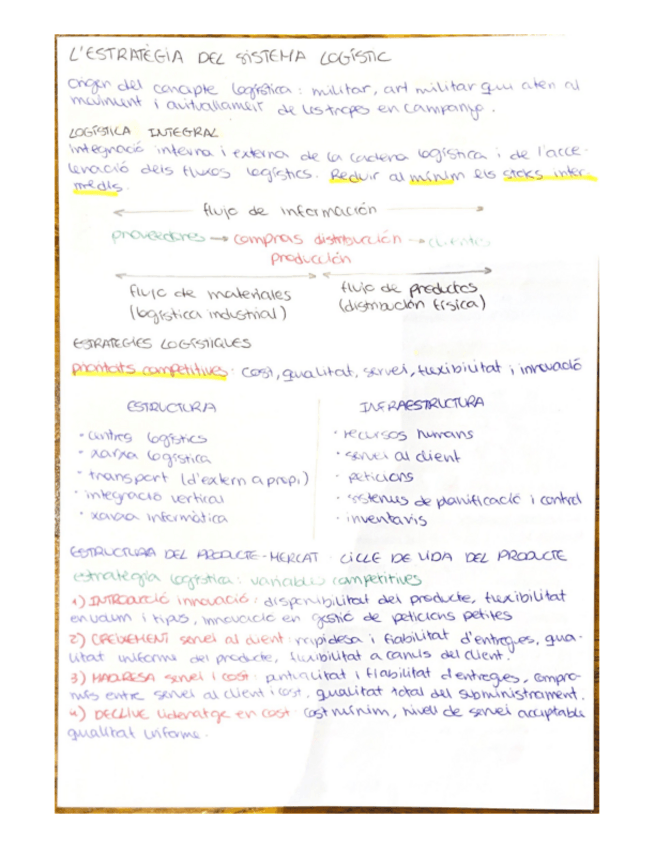 L'ESTRATÈGIA DEL SISTEMA LOGÍSTIC
origen del concepte logística: militar, art militar que atén al
moviment i avituallament de les tropes en campanya.
LOGÍSTICA INTEGRAL
integració interna i externa de la cadena logística i de l'acce-
leració dels fluxos logístics. Reduir al mínim els stocks inter-
medis.
flujo de información
proveedores → compras distribución → clientes
producción
flujo de materiales flujo de productos
(logística industrial) (distribución física)
ESTRATÈGIES LOGÍSTIQUES
prioritats competitives: cost, qualitat, servei, flexibilitat i innovació
ESTRUCTURA INFRAESTRUCTURA
· centres logístics · recursos humans
· xarxa logística · servei al client
· transport (d'extern a propi) · peticions
· integració vertical · sistemes de planificació i control
· xarxa informàtica · inventaris
ESTRUCTURA DEL PRODUCTE-MERCAT · CICLE DE VIDA DEL PRODUCTE
estratègia logística: variables competitives
1) INTRODUCCIÓ innovació: disponibilitat del producte, flexibilitat
en volum i tipus, innovació en gestió de peticions petites
2) CREIXEMENT servei al client: rapidesa i fiabilitat d'entregues, qua-
litat uniforme del producte, flexibilitat a canvis del client.
3) MADURESA servei i cost: puntualitat i fiabilitat d'entregues, compro-
mís entre servei al client i cost, qualitat total del subministrament.
4) DECLIVE lideratge en cost: cost mínim, nivell de servei acceptable
qualitat uniforme.